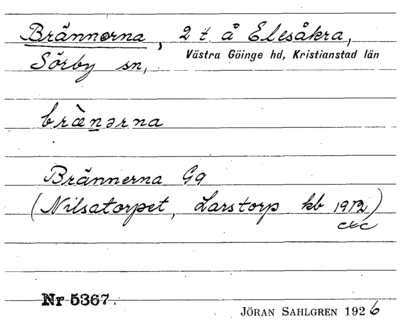 Brännerna, 2 t. å Elesåkra,
Sörby sn, Västra Göinge hd, Kristianstad län
brænərna
Brännerna Gg
(Nilsatorpet, Larstorp kb 1912)
Nr 5367.
JÖRAN SAHLGREN 1926